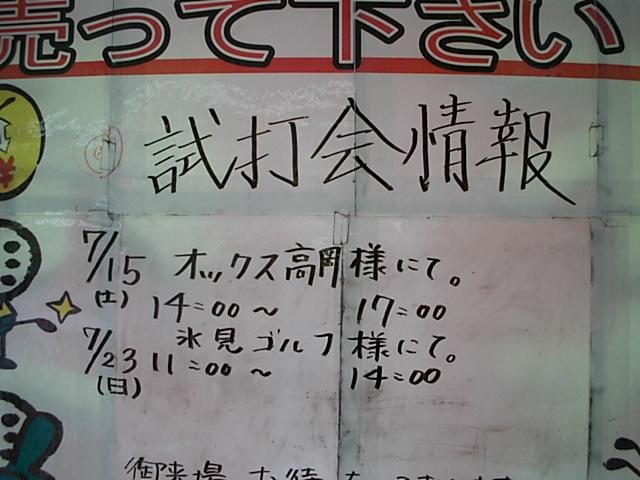 売って下さい
試打会情報
7/15 オックス高岡様にて。
(土) 14=00～ 17=00
7/23 氷見ゴルフ様にて。
(日) 11=00～ 14=00
御来場 お待ち